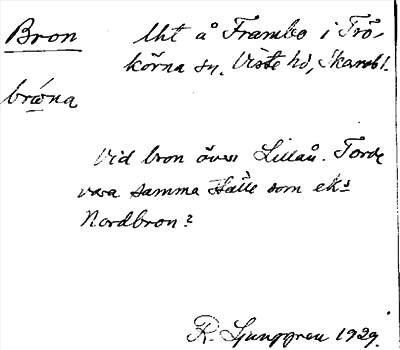 Bron Uht å Frambo i Trö-
körna sn, Viste hd, Skarabl.
brωna
Vid bron över Lillån. Torde
vara samma ställe som ek:s
Nordbron?
R. Ljunggren 1929.